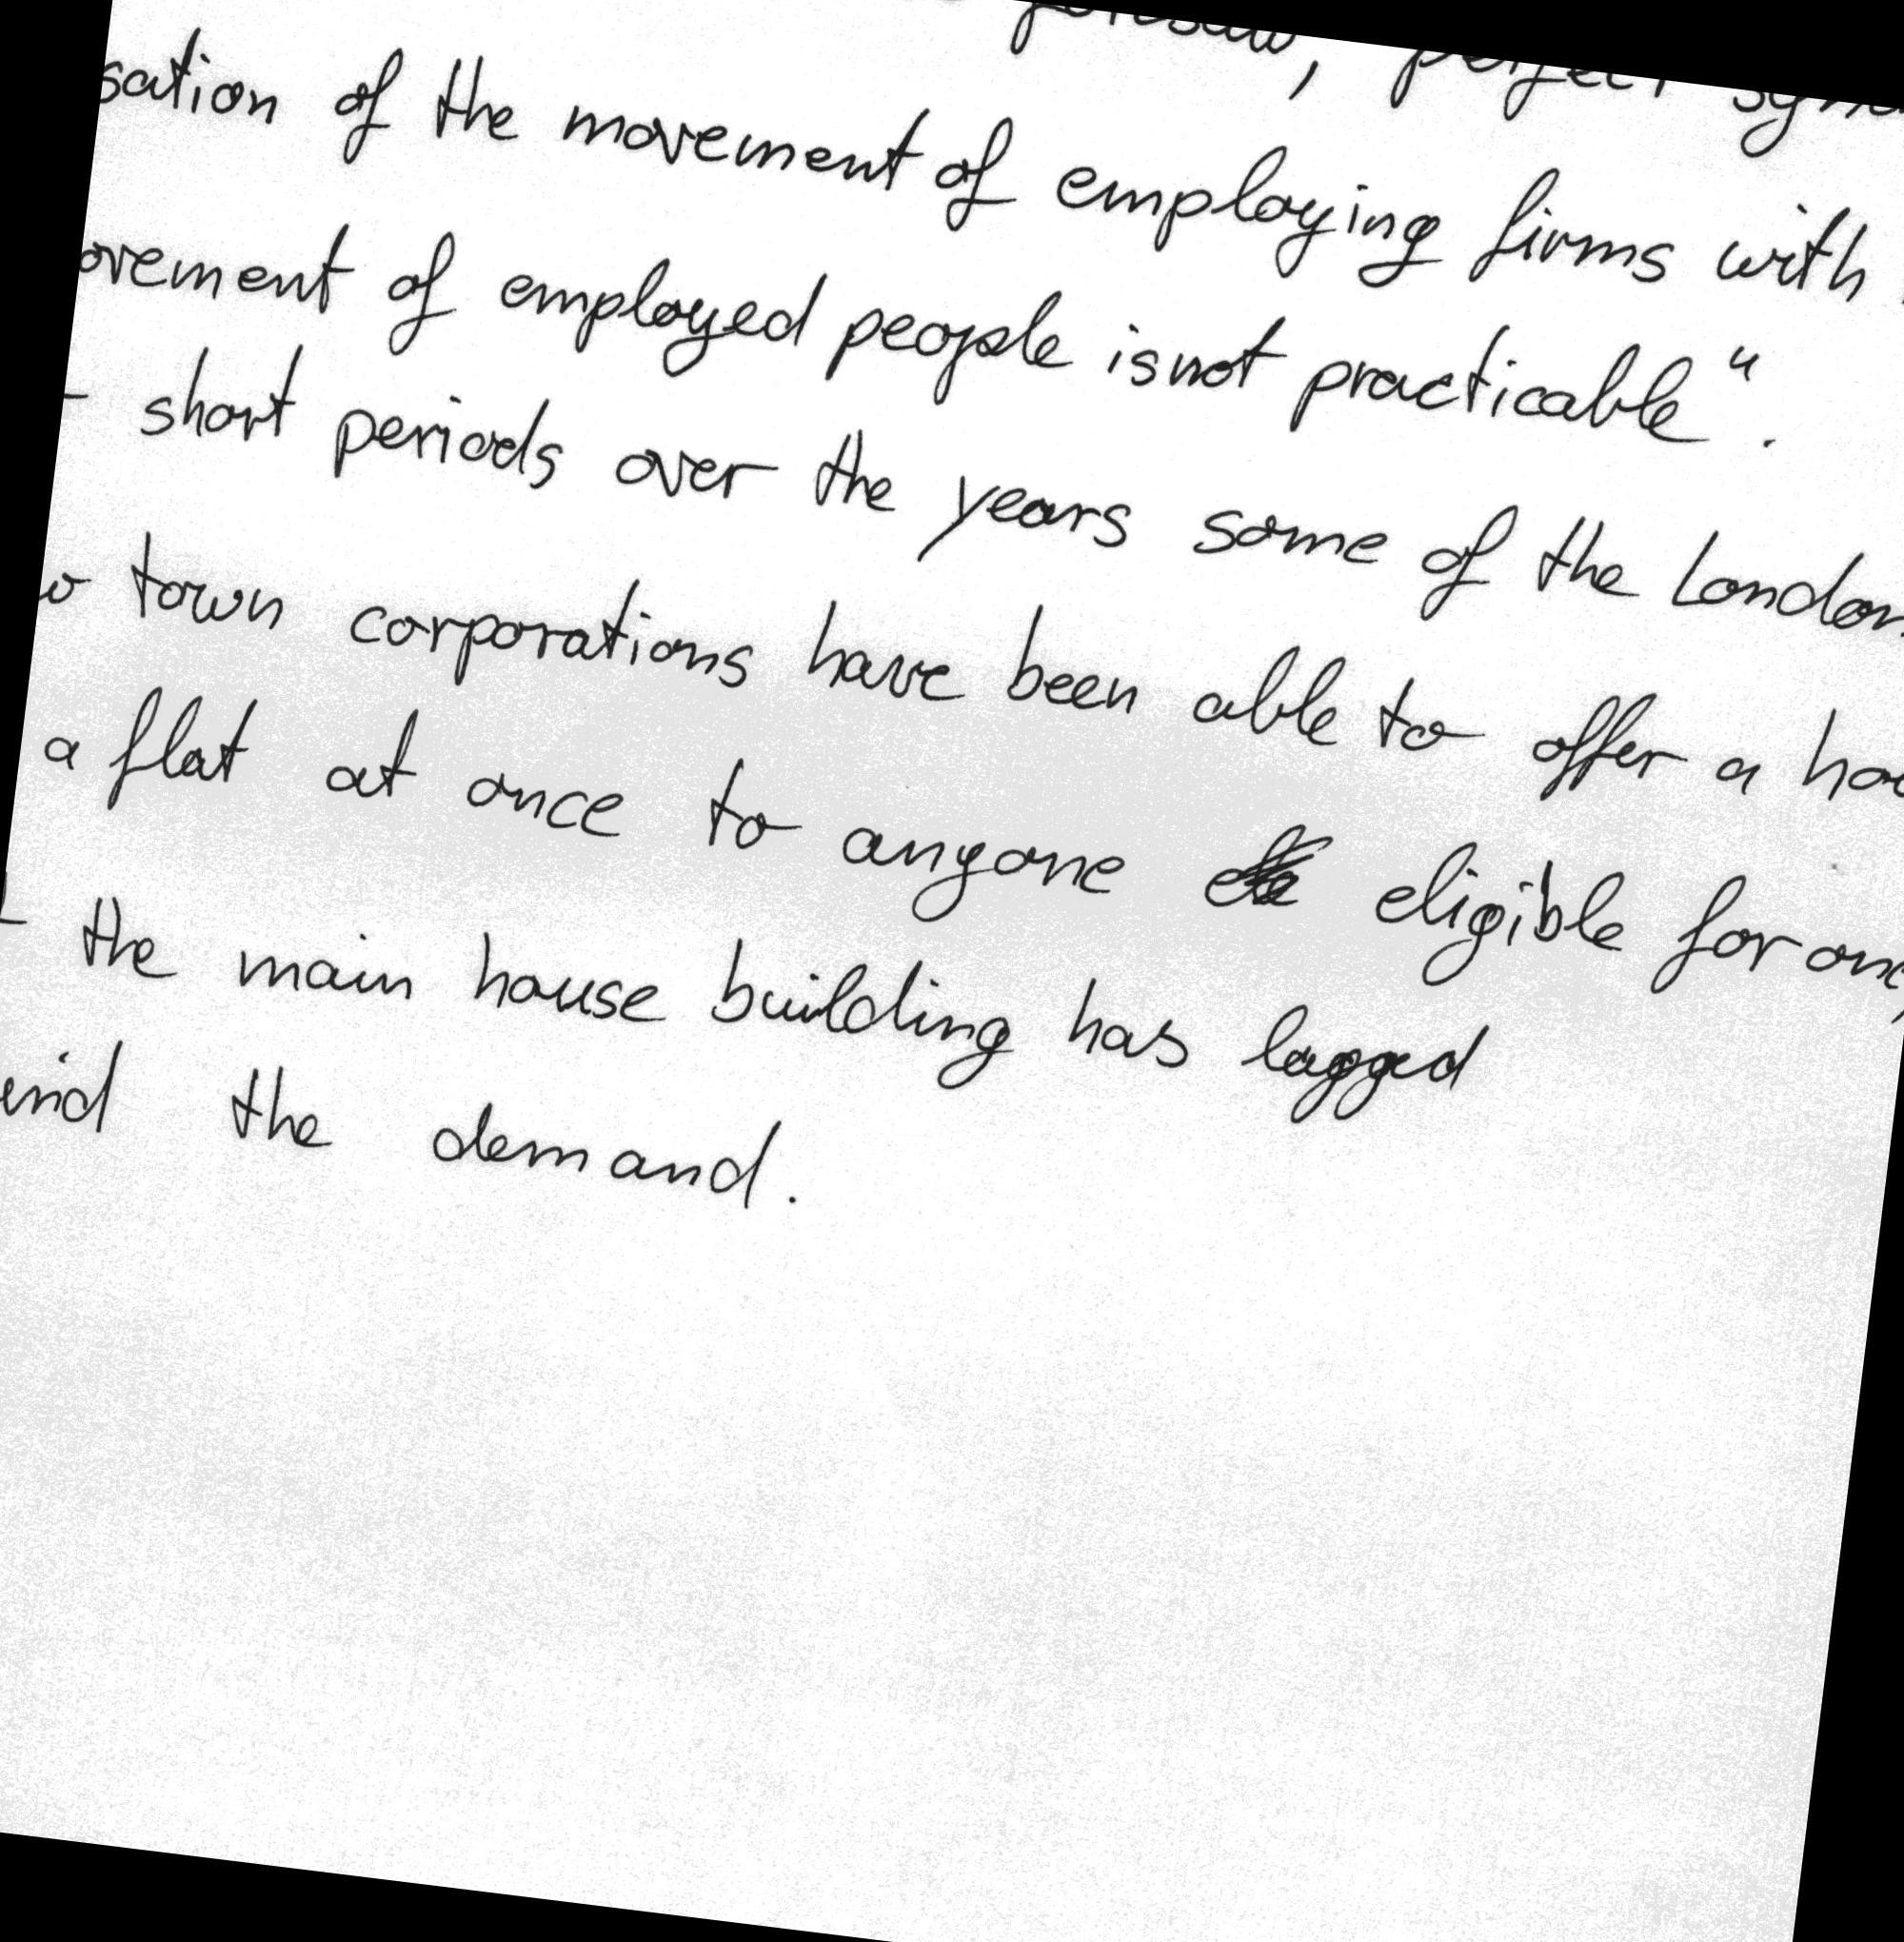 foresaw, perfect
sation of the movement of employing firms with
ovement of employed people is not practicable".
- short periods over the years some of the London
town corporations have been able to offer a
a flat at once to anyone eligible for one,
- the main house building has lagged
the demand.